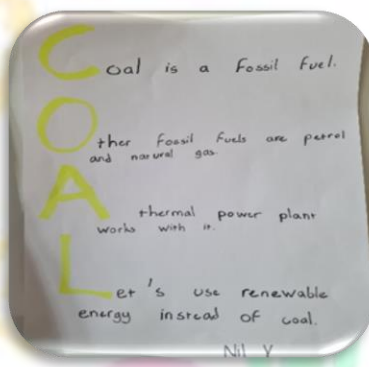 Coal is a fossil fuel.
Other fossil fuels are petrol
and natural gas.
A thermal power plant
works with it.
Let's use renewable
energy instead of coal.
Nil Y